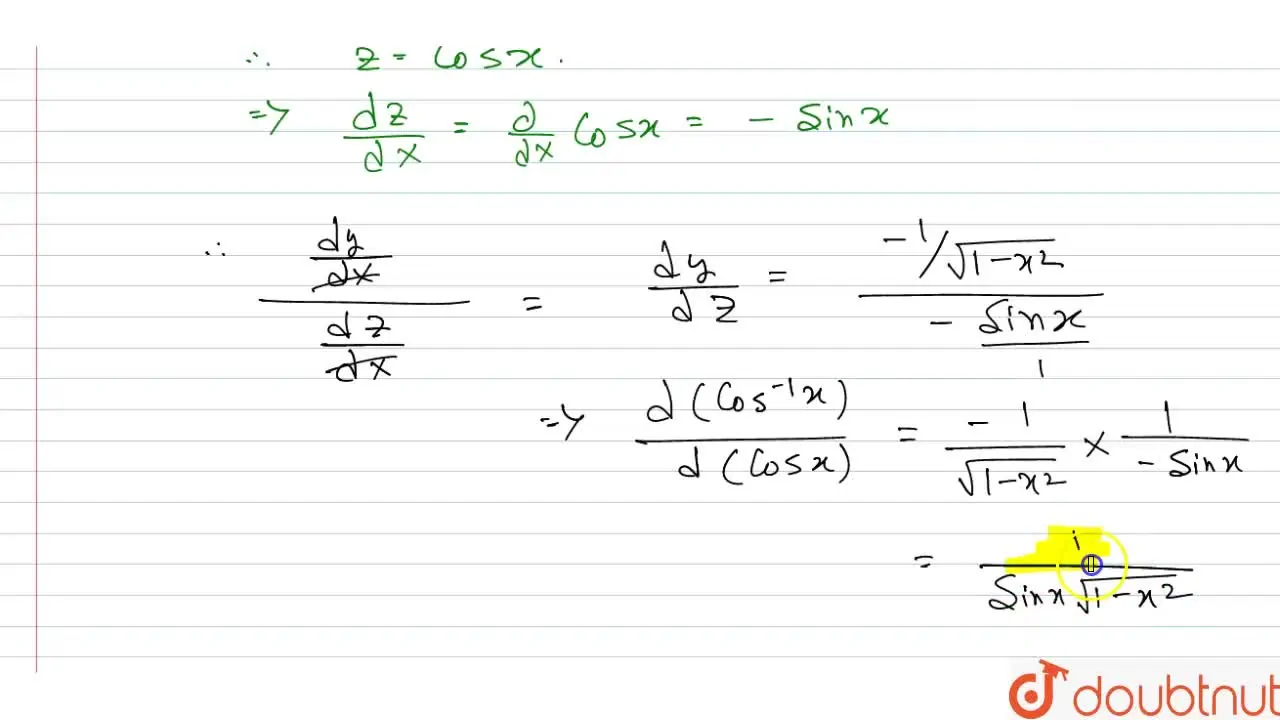 ∴ z = cos x.
=> dz/dx = d/dx cos x = - sin x
∴ (dy/dx)/(dz/dx) = dy/dz = (-1/√(1-x²))/(- sin x/1)
=> d(cos⁻¹x)/d(cos x) = -1/√(1-x²) × 1/(- sin x)
= i/(sin x √(1-x²))
doubtnut